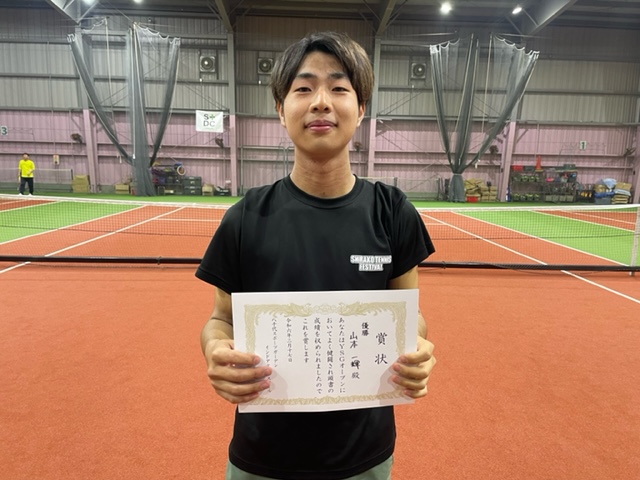 S DC
3
1
SHIRAKO TENNIS
FESTIVAL
賞状
優勝
山本 一輝 殿
あなたはYSGオープンに
おいてよく健闘され頭書の
成績を収められましたので
これを賞します
八千代スポーツガーデン